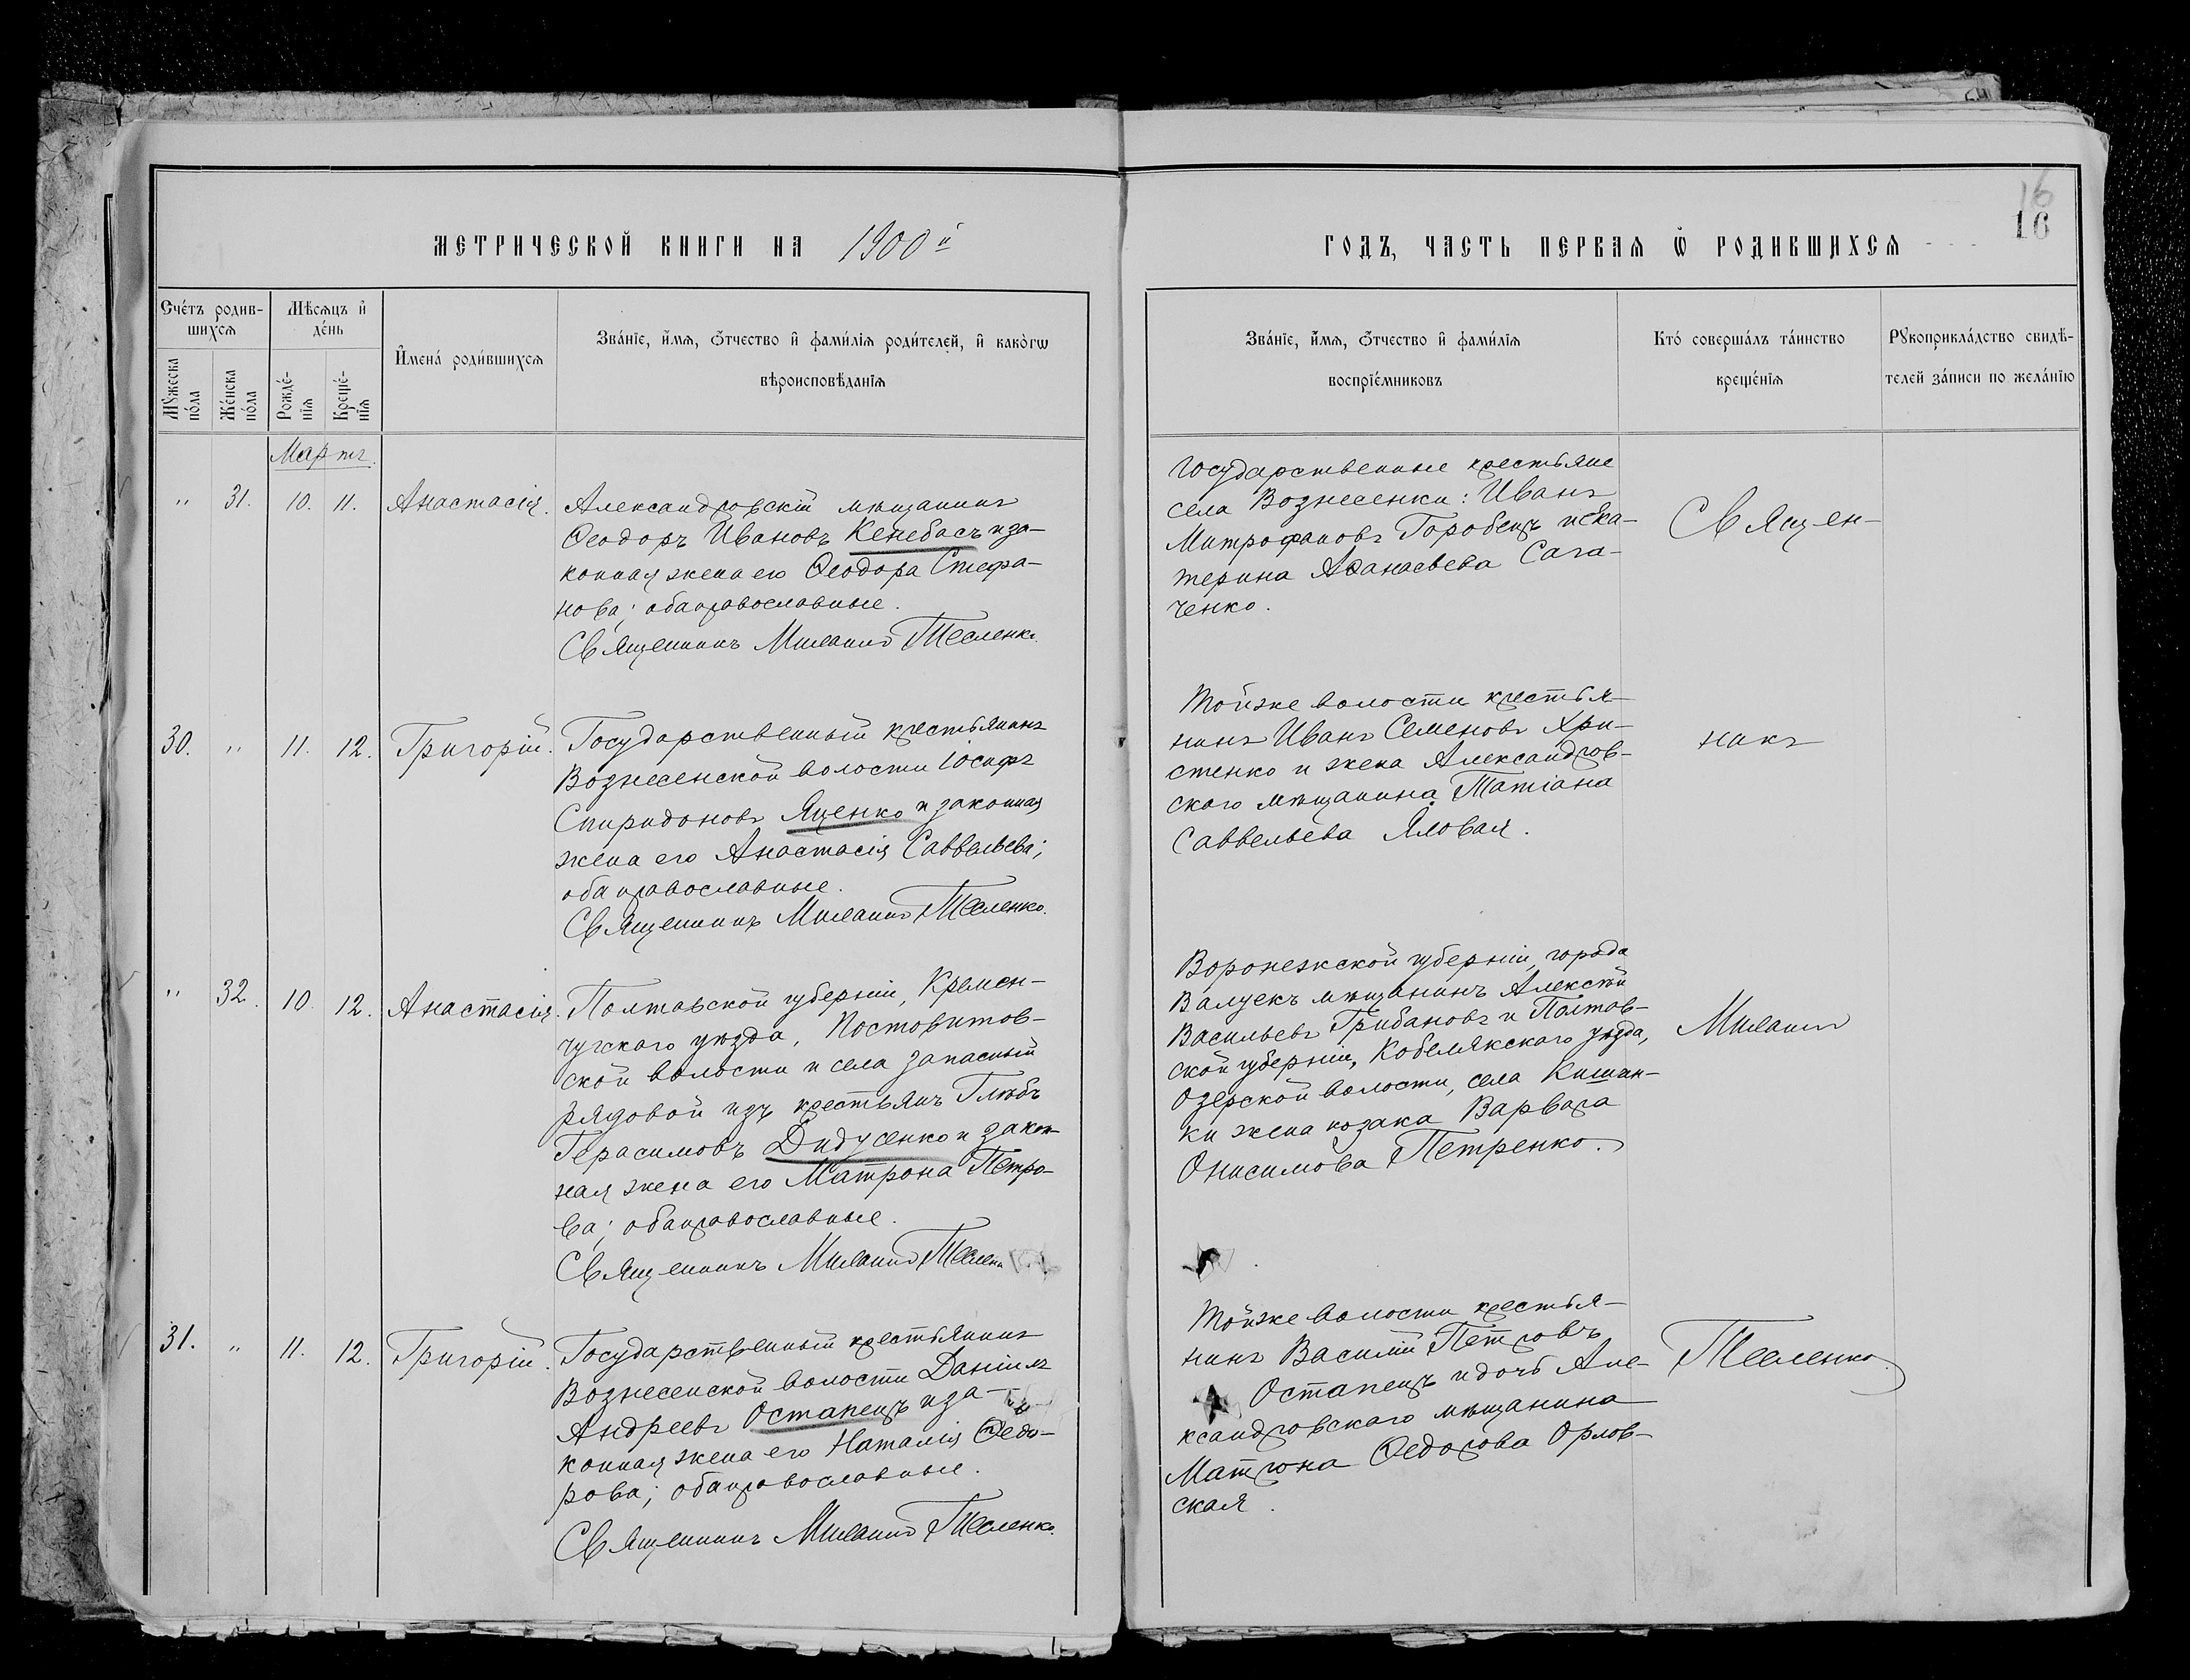 16
16
МЕТРИЧЕСКОЙ КНИГИ НА 1900й
ГОДЪ, ЧАСТЬ ПЕРВАЯ Ѡ РОДИВШИХСЯ
Сче́тъ родив-
шихсѧ
Мѣсѧцъ и҆
де́нь
И҆мена̀ роди́вшихсѧ
Зва́нїе, и҆́мѧ, ѻ҆́тчество и҆ фами́лїѧ роди́телей, и҆ како́гѡ
вѣроисповѣ́данїѧ
Мꙋ́жеска
по́ла
Же́нска
по́ла
Рожде́-
нїѧ
Креще́-
нїѧ
Зва́нїе, и҆́мѧ, ѻ҆́тчество и҆ фами́лїѧ
воспрїе́мниковъ
Кто́ соверша́лъ та́инство
креще́нїѧ
Рꙋкоприкла́дство свидѣ́-
телей за́писи по жела́нїю
Мартъ.
" 31. 10. 11. Анастасія.
Александровскій мѣщанинъ
Ѳеодоръ Ивановъ Кенебасъ и за-
конная жена его Ѳеодора Стефа-
нова; оба православные.
Священникъ Михаилъ Тесленко.
Государственные крестьяне
села Вознесенки: Иванъ
Митрофановъ Горобецъ и Ека-
терина Аѳанасьева Сага-
ченко.
Священ-
30. " 11. 12. Григорій.
Государственный крестьянинъ
Вознесенской волости Іосифъ
Спиридоновъ Яценко и законная
жена его Анастасія Саввельева;
оба православные.
Священникъ Михаилъ Тесленко.
Той же волости крестья-
нинъ Иванъ Семеновъ Хри-
стенко и жена Александров-
ского мѣщанина Татіана
Саввельева Яловая.
никъ
" 32. 10. 12. Анастасія.
Полтавской губерніи, Кремен-
чугскаго уѣзда, Постовитов-
ской волости и села запасный
рядовой изъ крестьянъ Глѣбъ
Герасимовъ Дидусенко и закон-
ная жена его Матрона Петро-
ва; оба православные.
Священникъ Михаилъ Тесленк
Воронежской губерніи, города
Валуекъ мѣщанинъ Алексѣй
Васильевъ Грибановъ и Полтав-
ской губерніи, Кобелякскаго уѣзда,
Озерской волости, села Кишин-
ки жена козака Варвара
Онисимова Петренко.
Михаилъ
31. " 11. 12. Григорій.
Государственный крестьянинъ
Вознесенской волости Даніилъ
Андреевъ Остапецъ и за-
конная жена его Наталія Ѳедо-
рова; оба православные.
Священникъ Михаилъ Тесленко.
Той же волости крестья-
нинъ Василій Петровъ
Остапецъ и дочь Але-
ксандровскаго мѣщанина
Матрона Ѳедорова Орлов-
ская.
Тесленко